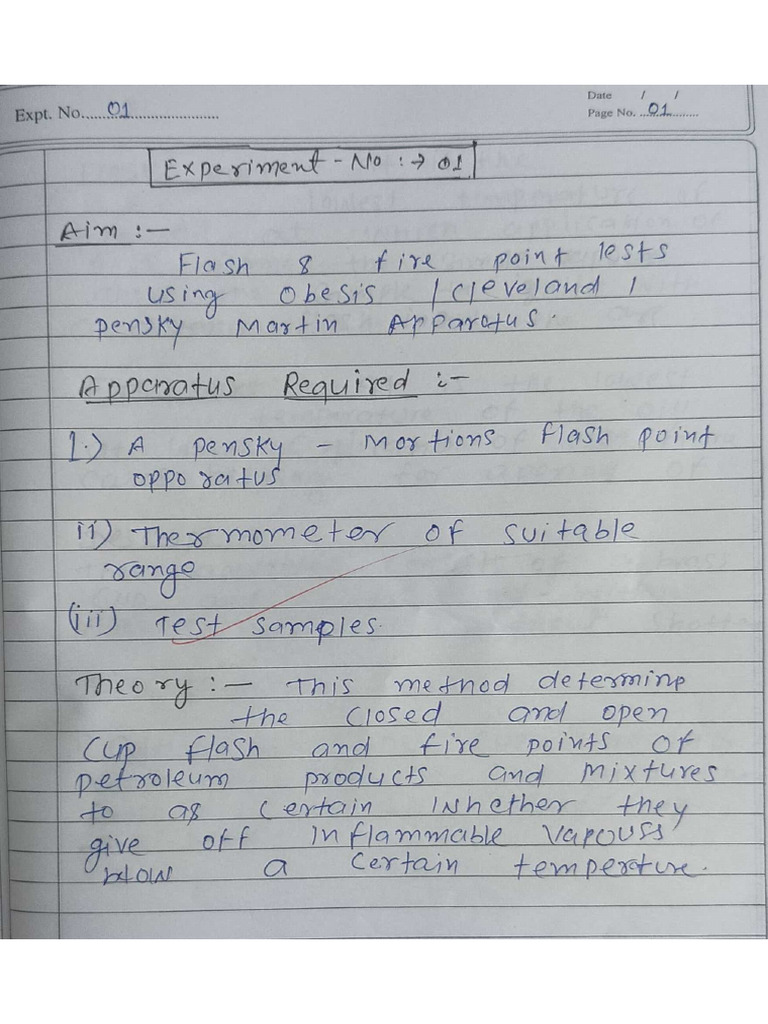 Expt. No. 01
Date / /
Page No. 01
Experiment - No :→ 01
Aim :-
Flash & fire point tests
using Obesis / Cleveland /
pensky Martin Apparatus.
Apparatus Required :-
1.) A pensky - Mortions flash point
opporatus
ii) Thermometer of suitable
range
(iii) Test samples.
Theory :- This method determine
the closed and open
cup flash and fire points of
petroleum products and mixtures
to as certain whether they
give off inflammable vapouss
below a certain temperture.